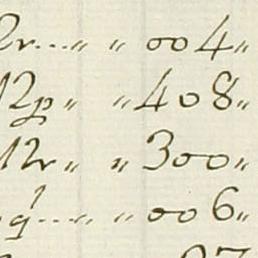 2r...〃 〃 004〃
12p〃 〃408〃
12r〃 〃300〃
q'...〃 〃006〃